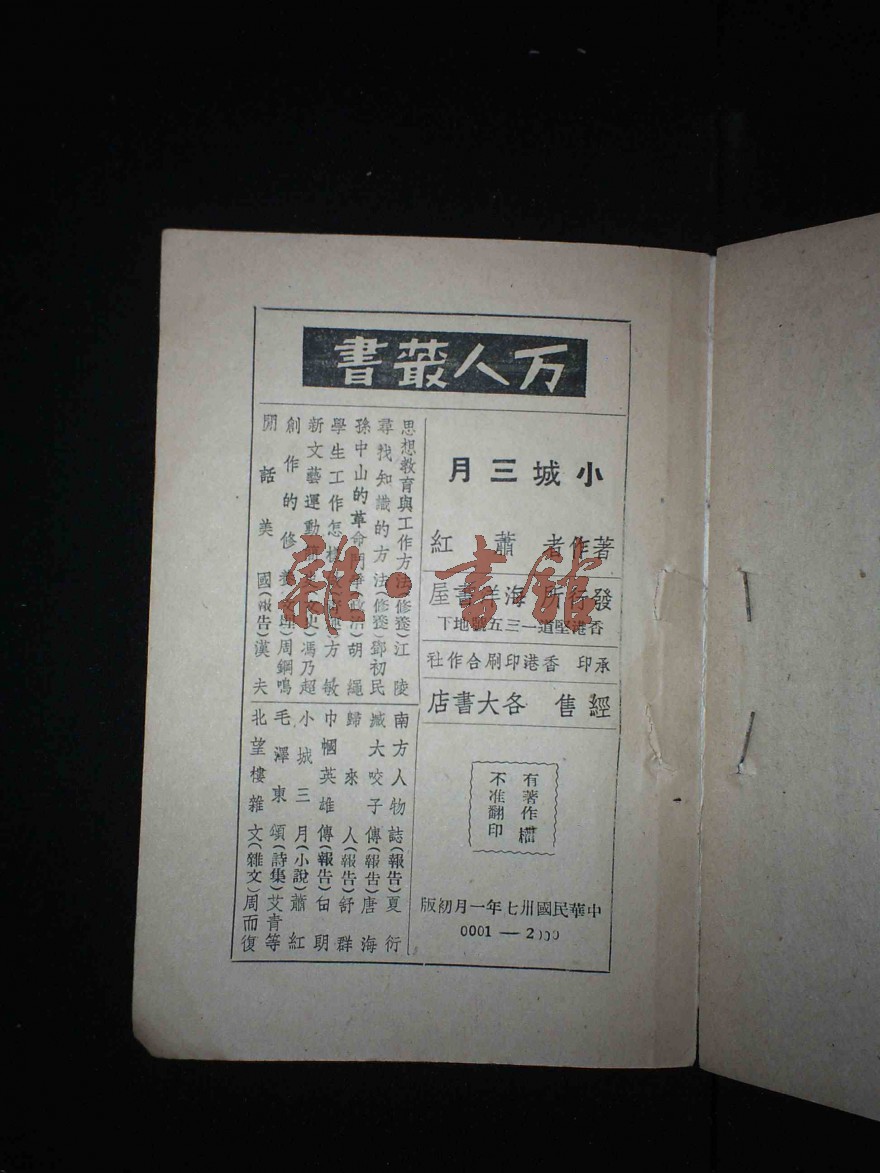 万人叢書
小城三月
著作者 蕭紅
發行所 海洋書屋
香港堅道一三五號地下
承印 香港印刷合作社
經售 各大書店
有著作權
不准翻印
中華民國卅七年一月初版
0001—2000
思想教育與工作方法(修養)江陵
尋找知識的方法(修養)鄧初民
孫中山的革命 胡繩
學生工作怎樣 方敏
新文藝運動 馮乃超
創作的修養 周鋼鳴
閒話美國(報告)漢夫
南方人物誌(報告)夏衍
臧大咬子傳(報告)唐海
歸來人(報告)舒群
巾幗英雄傳(報告)白朗
小城三月(小說)蕭紅
毛澤東頌(詩集)艾青等
北望樓雜文(雜文)周而復
雜·書館